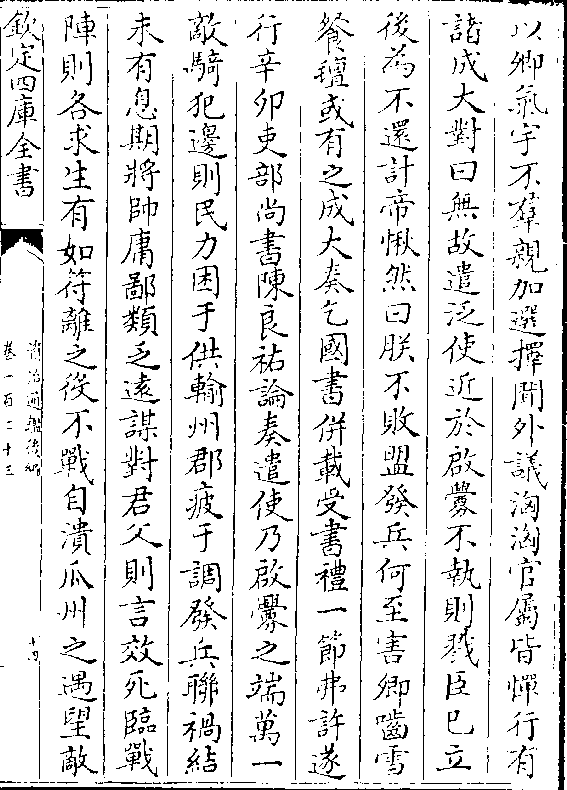 以卿氣宇不羣親加選擇聞外議洶洶官屬皆憚行有
諸成大對曰無故遣泛使近於啟釁不執則戮臣已立
後為不還計帝愀然曰朕不敗盟發兵何至害卿嚙雪
餐氊或有之成大奏乞國書併載受書禮一節弗許遂
行辛卯吏部尚書陳良祐論奏遣使乃啟釁之端萬一
敵騎犯邊則民力困于供輸州郡疲于調發兵聯禍結
未有息期將帥庸鄙類乏遠謀對君父則言效死臨戰
陣則各求生有如符離之役不戰自潰瓜州之遇望敵
欽定四庫全書
資治通鑑後編
卷一百二十三